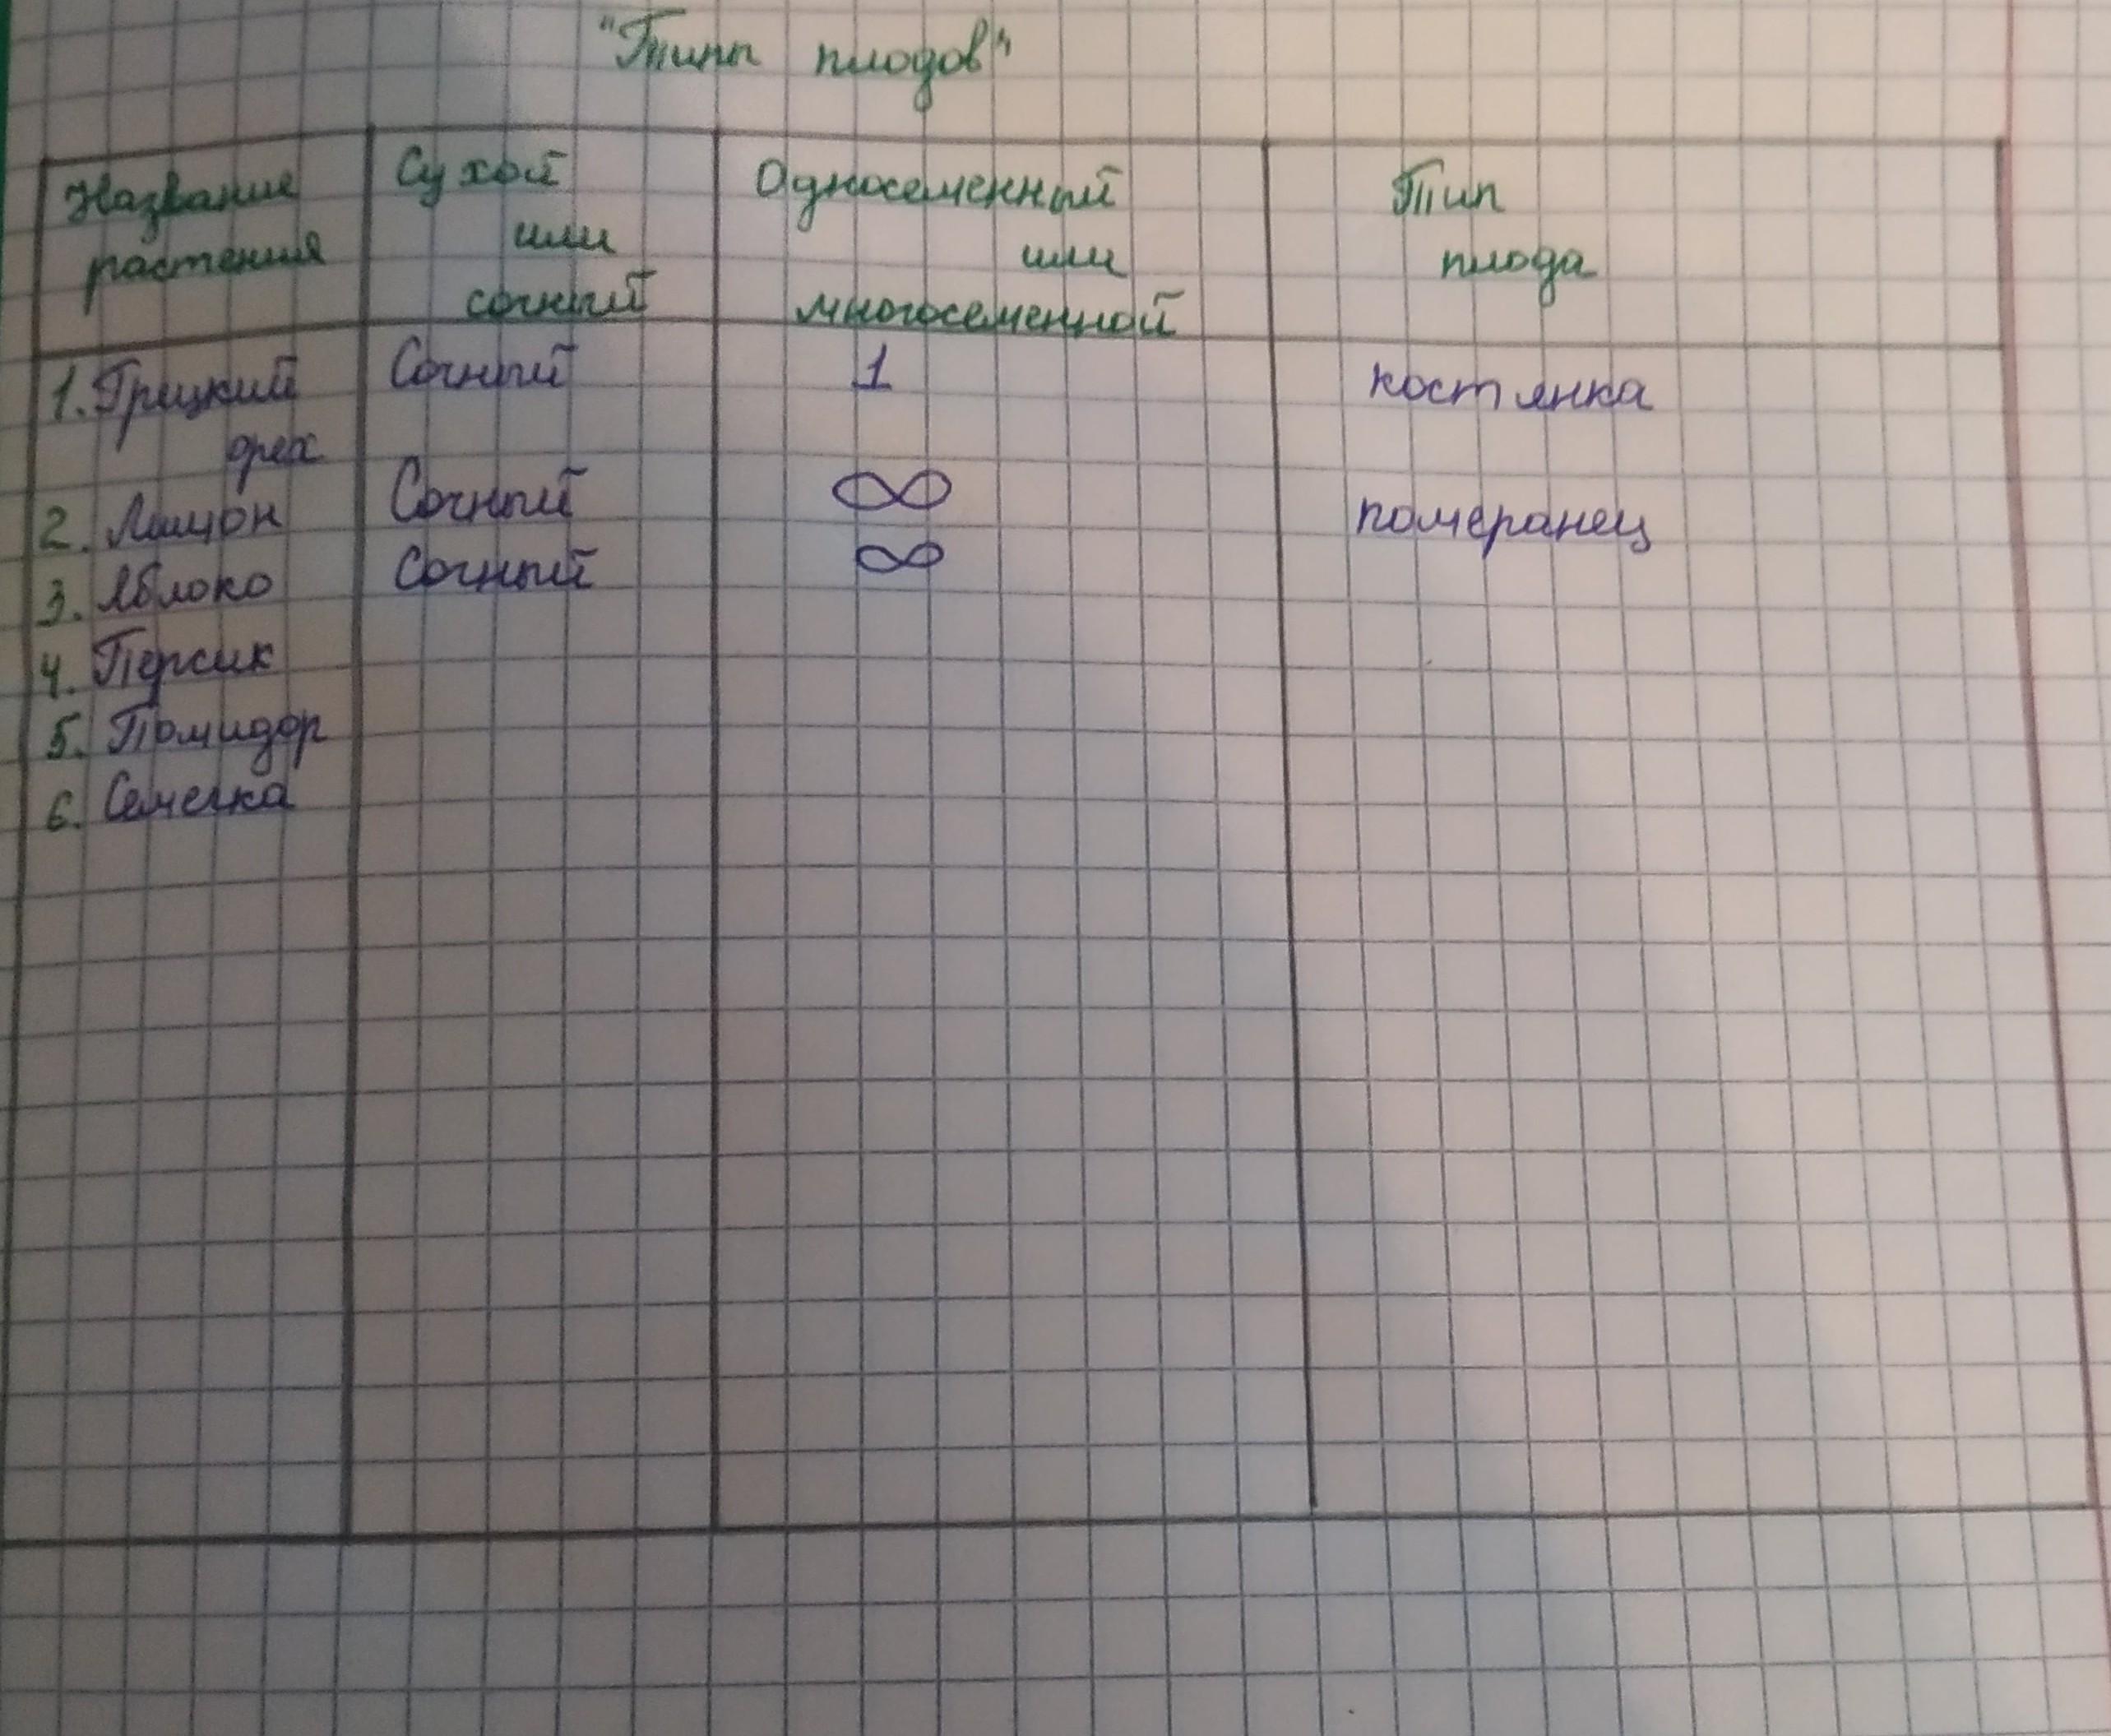 "Типы плодов"
Название
растения
Сухой
или
сочный
Односеменный
или
многосеменной
Тип
плода
1. Грецкий
орех
Сочный
1
костянка
2. Лимон
Сочный
∞
померанец
3. Яблоко
Сочный
∞
4. Персик
5. Помидор
6. Семечка